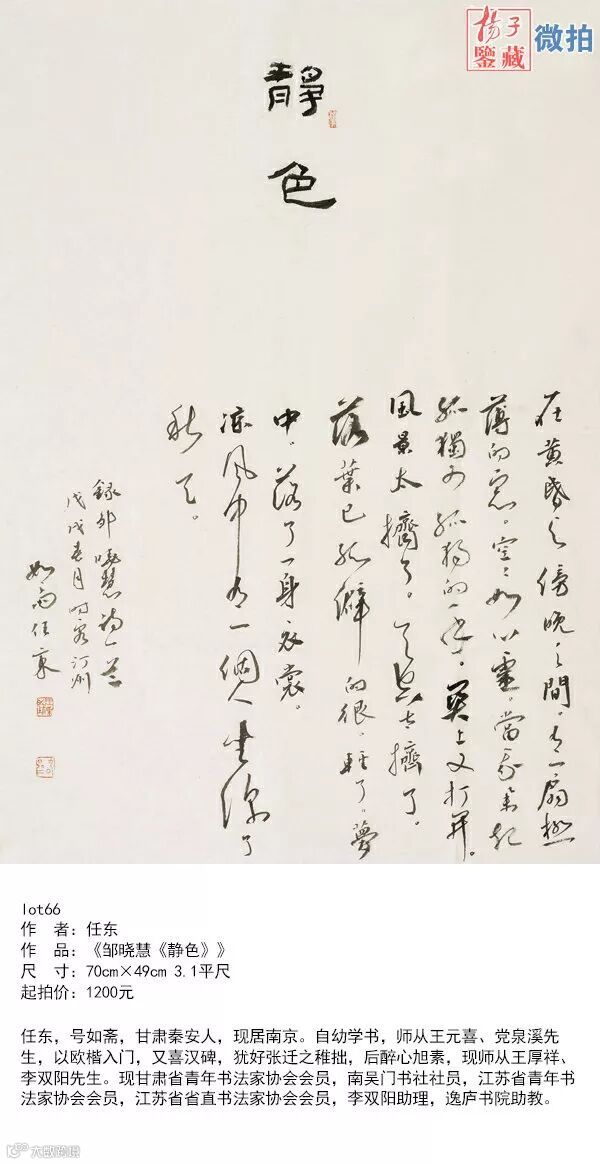 揚子
鑒藏
微拍
靜
色
在黄昏与傍晚之間。有一扇極
薄的窓。空空如心靈。當我拿起
孤獨
孤獨的一。闔上又打開。
風景太擠了。天空太擠了。
落葉已孤僻的很。輕了。夢
中。落了一身衣裳。
涼風中有一個人坐深了
秋天。
録邹曉慧詩一首
戊戌春月時客江州
如斋任東
lot66
作 者：任东
作 品：《邹晓慧《静色》》
尺 寸：70cm×49cm 3.1平尺
起拍价：1200元
任东，号如斋，甘肃秦安人，现居南京。自幼学书，师从王元喜、党泉溪先
生，以欧楷入门，又喜汉碑，犹好张迁之稚拙，后醉心旭素，现师从王厚祥、
李双阳先生。现甘肃省青年书法家协会会员，南吴门书社社员，江苏省青年书
法家协会会员，江苏省省直书法家协会会员，李双阳助理，逸庐书院助教。
大数跨境